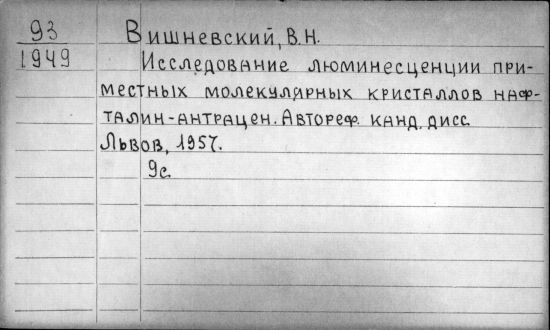 93
1949
Вишневский, В.Н.
Исследование люминесценции при-
местных молекулярных кристаллов наф-
талин-антрацен. Автореф. канд. дисс.
Львов, 1957.
9с.